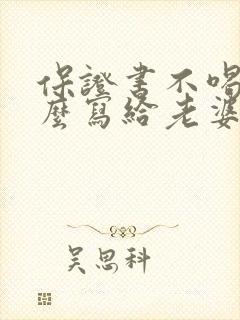 保證書不喝
麼寫給老婆
吳思科